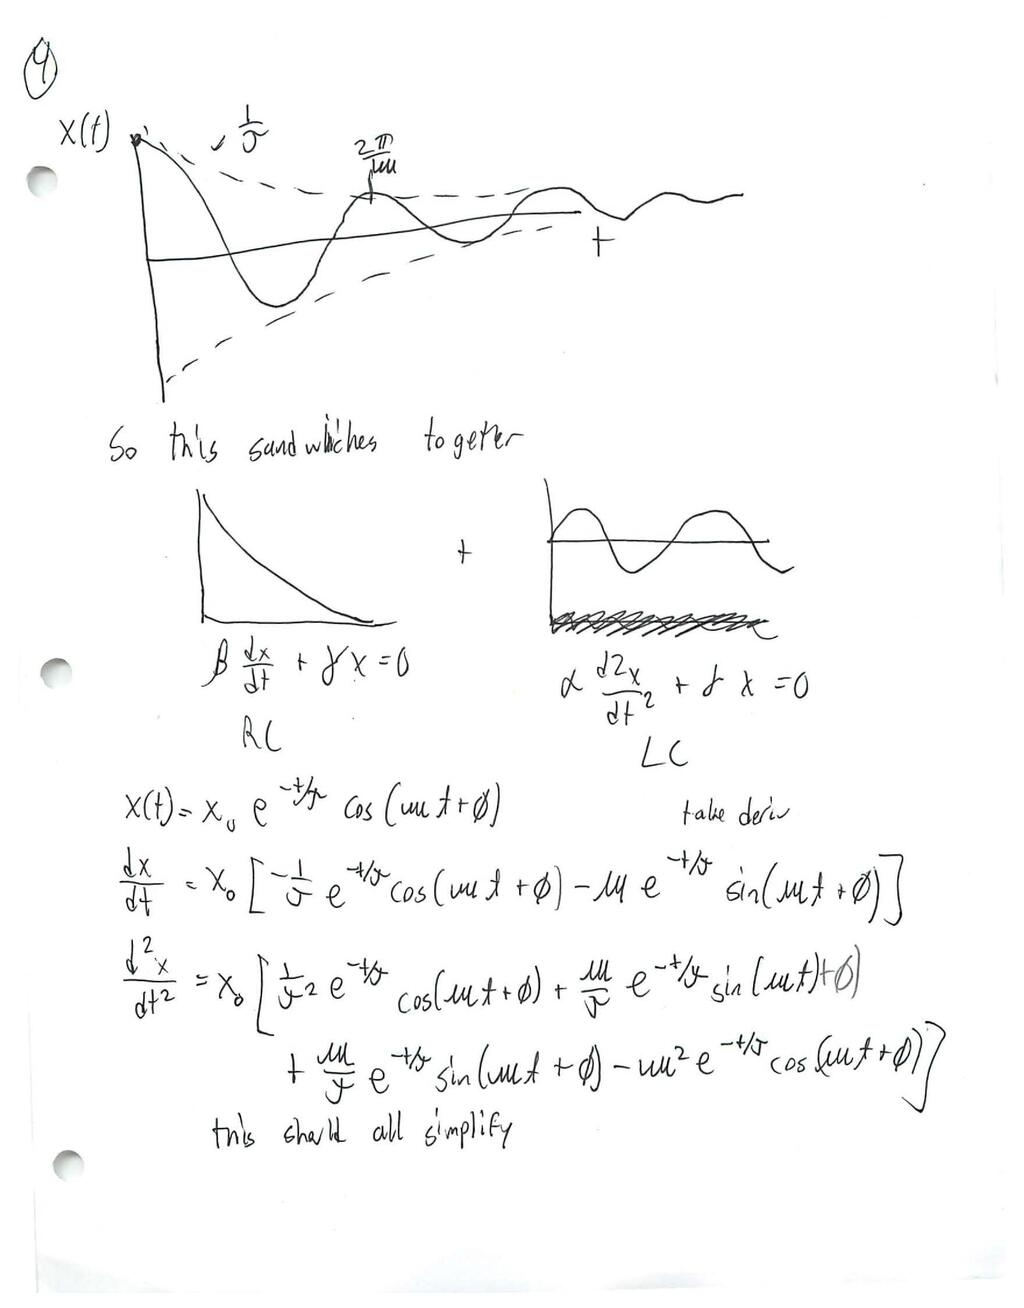 4
x(t)
1/J
2π/ω
t
So this sandwhiches togeter
+
β dx/dt + γ x = 0
α d2x/dt² + γ x = 0
RC
LC
x(t) = x₀ e^(-t/J) cos(ωt+φ)
take deriv
dx/dt = x₀ [-1/J e^(-t/J) cos(ωt+φ) - ω e^(-t/J) sin(ωt+φ)]
d²x/dt² = x₀ [1/J² e^(-t/J) cos(ωt+φ) + ω/J e^(-t/J) sin(ωt)+φ)
+ ω/J e^(-t/J) sin(ωt+φ) - ω² e^(-t/J) cos(ωt+φ)]
this should all simplify